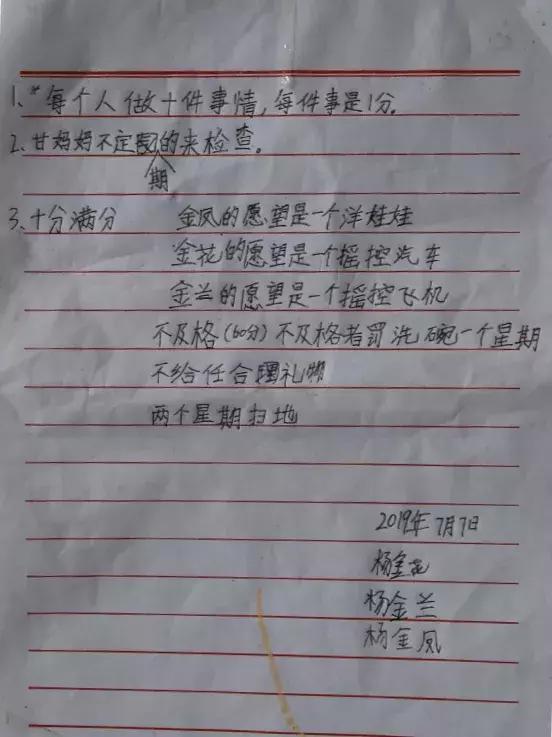 1、*每个人做十件事情，每件事是1分。
2、甘妈妈不定期的来检查。
3、十分满分 金凤的愿望是一个洋娃娃
金花的愿望是一个摇控汽车
金兰的愿望是一个摇控飞机
不及格（60分）不及格者罚洗碗一个星期
不给任合礼物
两个星期扫地
2019年7月7日
杨金花
杨金兰
杨金凤